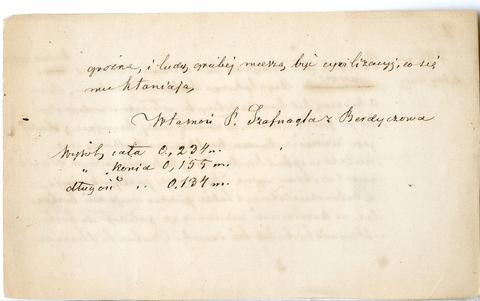 groźne, i ludy grubej muszą być cywilizacyj, co się
nie kłaniają
Własność P. Szafnagla z Berdyczowa
Wysok. cała 0,234 m.
" konia 0,155 m.
długość " 0,134 m.